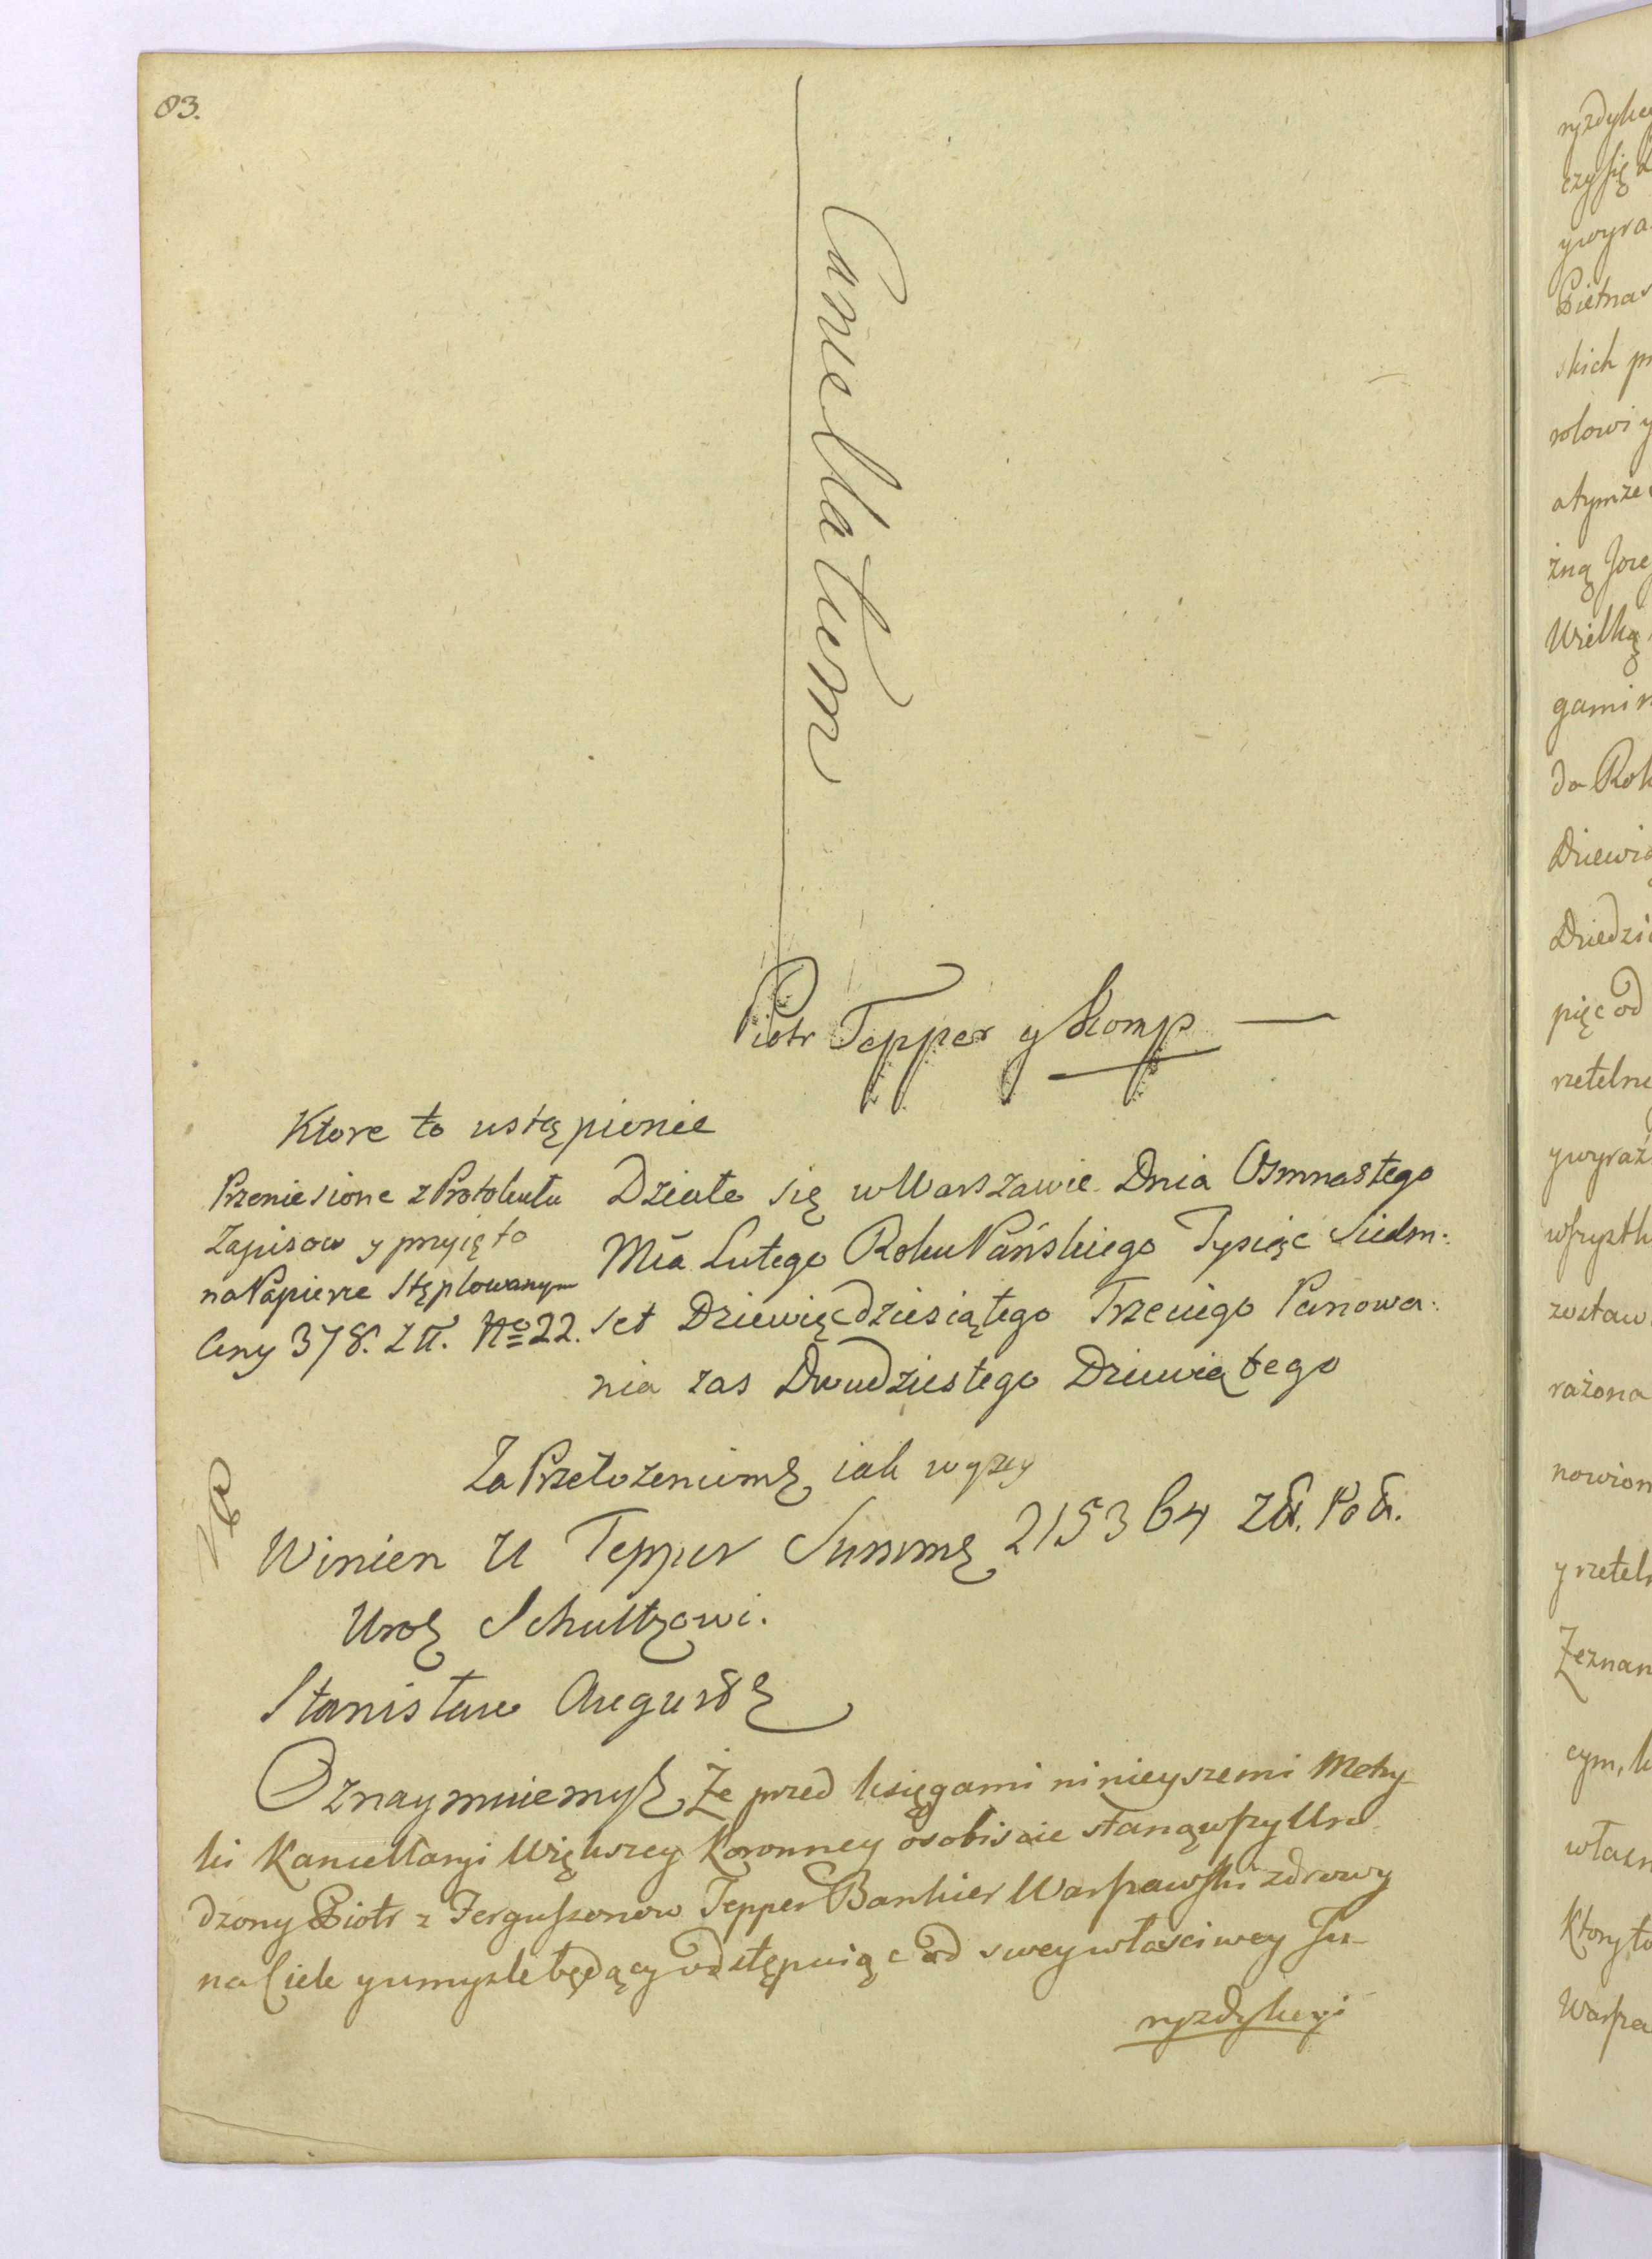 83.
Cancellatum
Piotr Tepper y komp —
Ktore to ustąpienie
Przeniesione z Protokułu
Zapisow y przyięto
na Papierze Stęplowanym
Ceny 378. Złł. No 22.
Działo się w Warszawie Dnia Osmnastego
Mca Lutego Roku Pańskiego Tysiąc Siedm-
set Dziewięćdziesiątego Trzeciego Panowa-
nia zas Dwudziestego Dziewiątego
Za Przełożeniem iak wyzey
Winien U Tepper Summę 215364 Zł. Pol.
Uro Schultzowi.
Stanisław August
Oznaymuiemy Że przed księgami ninieyszemi Metry-
ki Kancellaryi Większey Koronney osobiscie stanąwszy Uro-
dzony Piotr z Fergussonow Tepper Bankier Warszawski zdrowy
na Ciele y umysle będący odstępuiąc od swey własciwey Ju-
ryzdykcyi
ryzdykcy
czy się
y wyra
Pietnas
skich pr
rolowi y
atymze
żną Joze
Wielką
gami n
do Rok
Dziewią
Dziedzi
pięć od
rzetelne
y wyraź
wszystk
zostaw
rażona
nowion
y rzeteln
Zeznan
cym, k
własn
Ktory to
Warsza